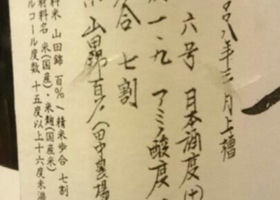 八年三月上槽
六号 日本酒度(+
一・九 アミノ酸度
合 七割
山田錦百%(田中農場
料米 山田錦 百%/精米歩合 七割
材料名 米(国産)・米麹(国産米)
ルコール度数 十五度以上十六度未満